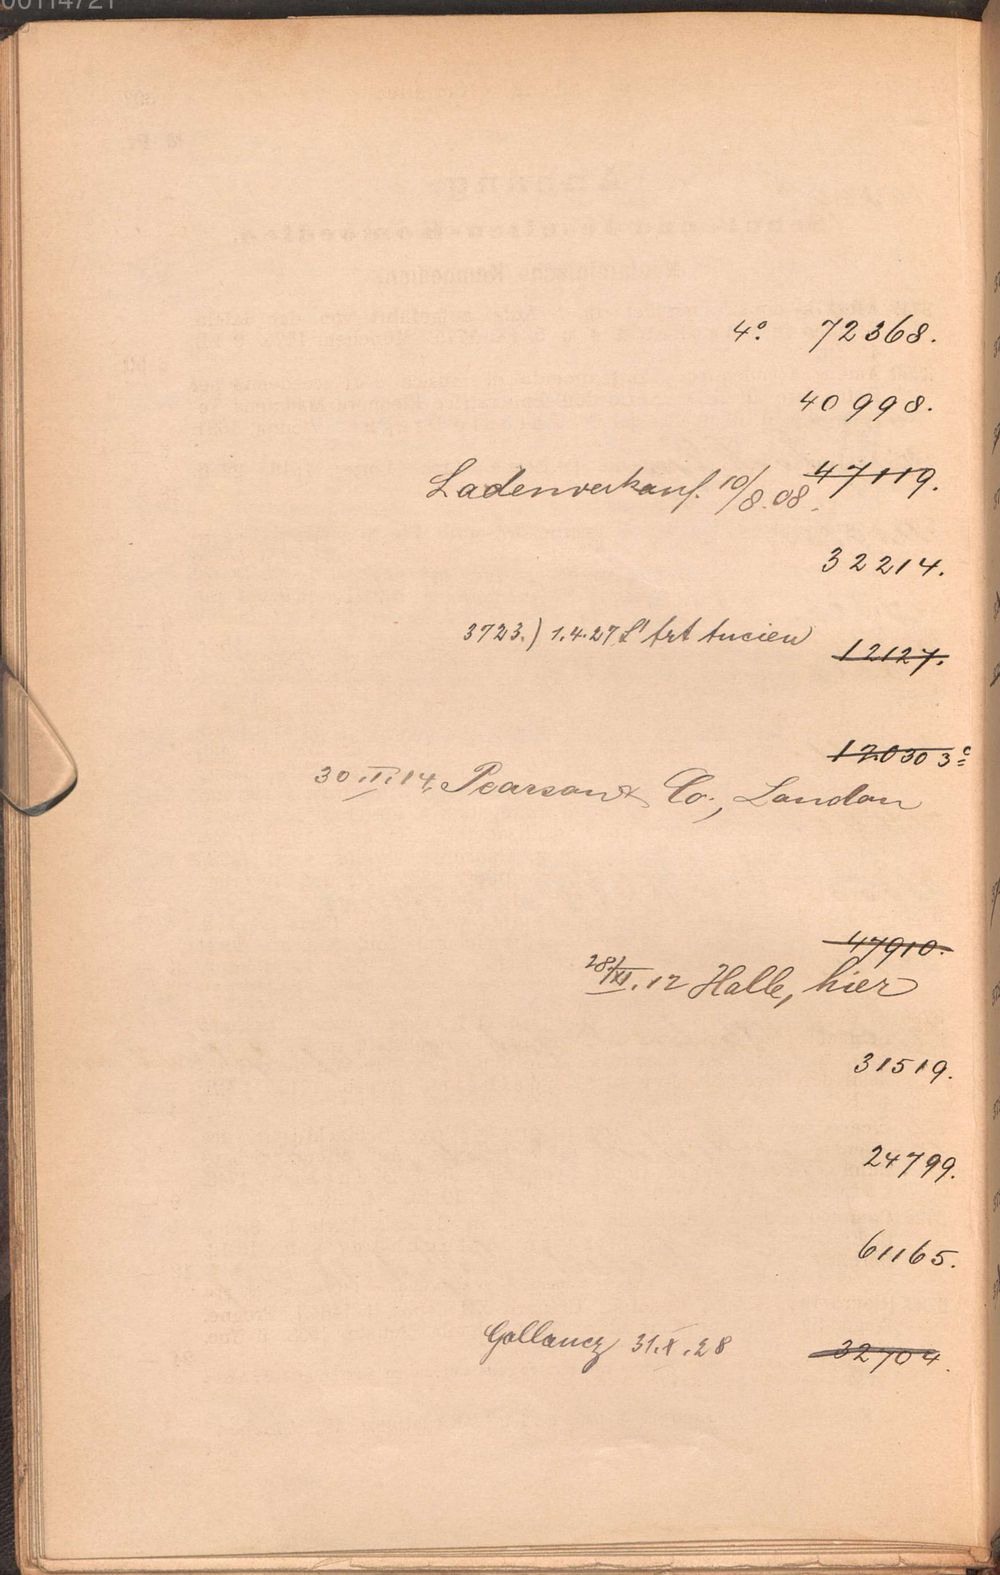 4° 72368.
40998.
Ladenverkauf. 10/8.08. 47119.
32214.
3723.) 1.4.27 L'Art Ancien 12127.
12030 3c
30.II.14. Pearson & Co., London
47910.
28/XI.12 Halle, hier
31519.
24799.
61165.
Gollancz 31.X.28 32704.